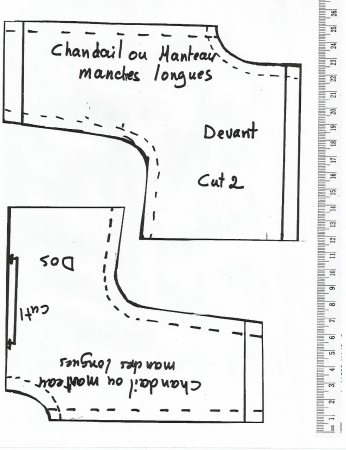 Chandail ou Manteau
manches longues
Devant
Cut 2
Dos
Cut 1
Chandail ou manteau
manches longues
26
25
24
23
22
21
20
19
18
17
16
15
14
13
12
11
10
9
8
7
6
5
4
3
2
1